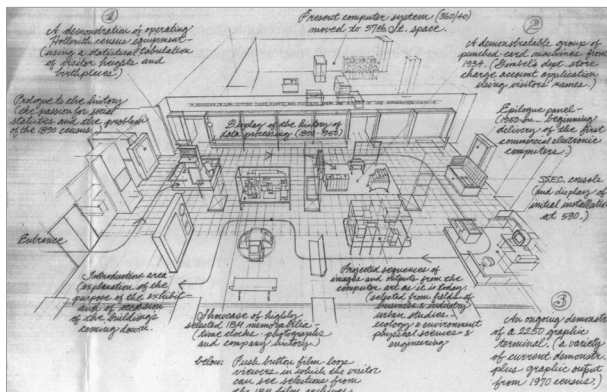 1
A demonstration of operating
Hollerith census equipment -
(using a statistical tabulation
of visitor heights and
birthplaces)
Present computer system (360/40)
moved to 57th St. space.
2
A demonstratable group of
punched-card machines from
1934. (Gimbel's dept. store
charge account application
using visitors' names.)
Prologue to the history
(the passion for social
statistics and the problem
of the 1890 census)
Display of the history of
data processing (1890-1950)
Epilogue panel -
(1950 on - beginning
delivery of the first
commercial electronic
computers)
SSEC console
(and display of
initial installation
at 590.)
Entrance
Introduction area
(explanation of the
purpose of the exhibit
and of
of the buildings
coming down.
Showcase of highly
selected IBM memorabilia -
(time clocks - photographs
and company history)
below: Push button film loop
viewers in which the visitor
can see selections from
the IBM film archives
Projected sequences of
images and outputs from the
computer art as it is today.
(selected from fields of
business & industry
urban studies -
ecology & environment
physical sciences &
engineering
3
An ongoing demonstr
of a 2250 graphic
terminal. (a variety
of current demonstr
plus graphic output
from 1970 census.)